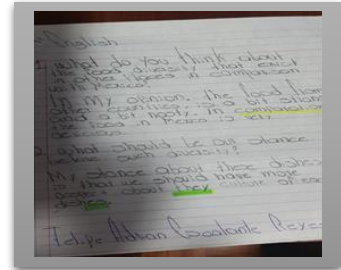 English
1. what do you think about
the food diversity that exist
in other places in comparison
with Mexico?
In my opinion, the food from
other countries, is a bit strange
and a bit nasty. In comparation
the food in Mexico is very
delicious.
2. what should be our stance
before such diversity?
My stance about these dishes
is that we should have more
about they culture of
Felipe Adrian Reyes